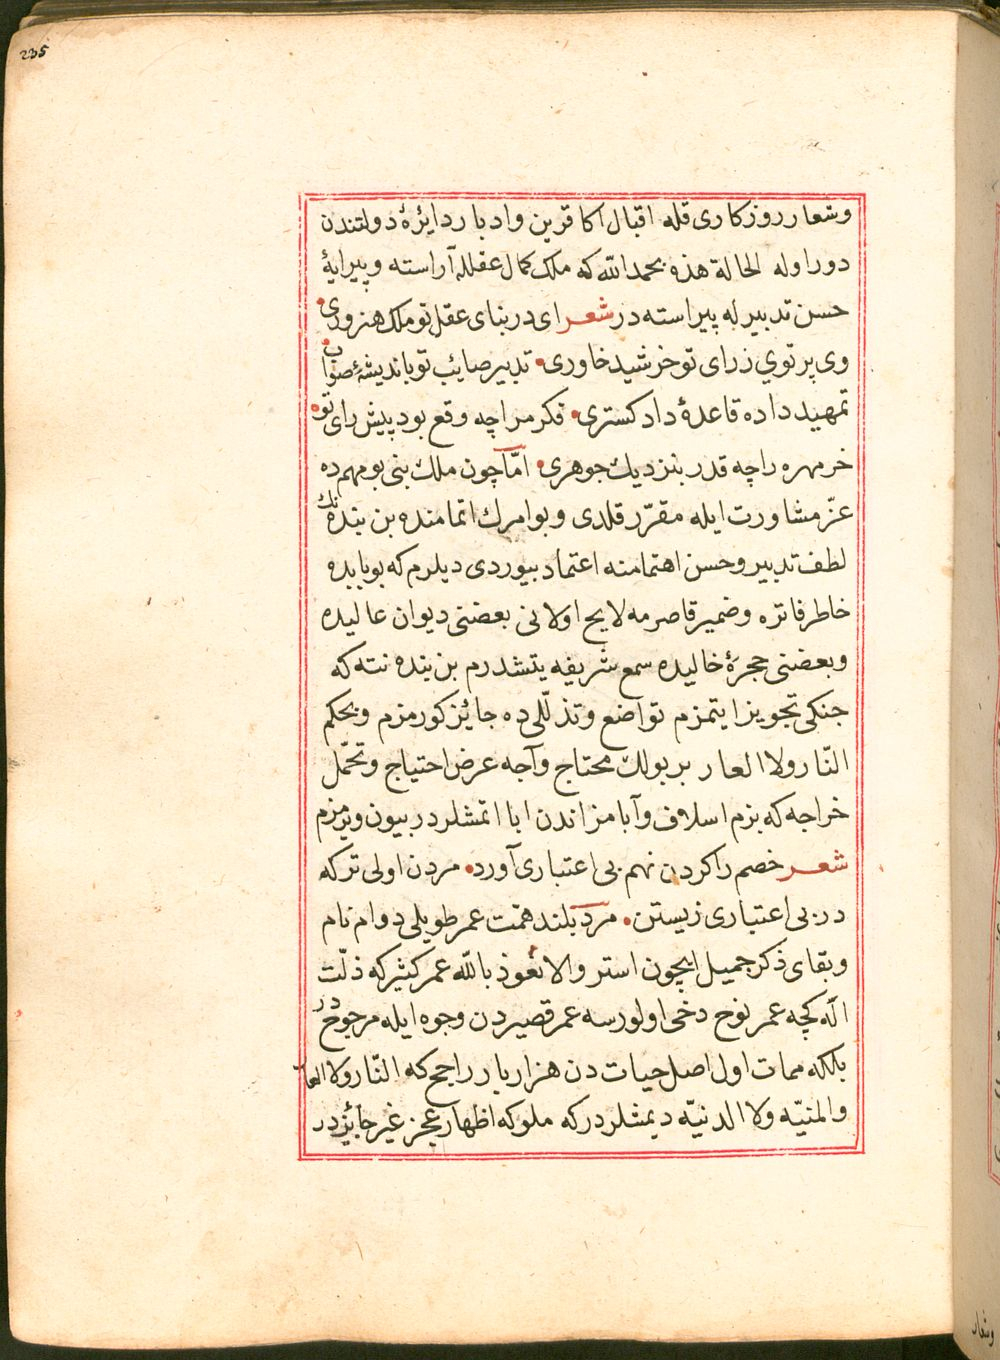 235
وشعار روزكارى قله اقبال اكا قرين وادبار دايرهٔ دولتندن
دور اوله الحالة هذه بحمد الله كه ملك كمال عقلله آراسته وپيرايهٔ
حسن تدبير له پيراسته در شعر اى در بناى عقل تو ملك هنرورى
وى پرتوي ز راى تو خرشيد خاورى تدبير صائب تو باانديشهٔ صواب
تمهيد داده قاعدهٔ داد كسترى فكر مرا چه وقع بود پيش راى تو
خر مهره را چه قدر بنزديك جوهرى امّا چون ملك بنى بو مهم ده
عزّ مشاورت ايله مقرّر قلدى وبو امرك اتمامنده بن بنده نك
لطف تدبير وحسن اهتمامنه اعتماد بيوردى ديلرم كه بو بابده
خاطر فاتره وضمير قاصرمه لايح اولانى بعضنى ديوان عاليده
وبعضنى حجرهٔ خاليده سمع شريفه يتشدرم بن بنده نته كه
جنكى تجويز ايتمزم تواضع وتذلّلى ده جائز كورمزم وبحكم
النّار ولا العار بر بولك محتاج وآجه عرض احتياج وتحمّل
خراجه كه بزم اسلاف وآبامز اندن ابا اتمشلردر بيون ويرمزم
شعر خصم را كردن نهم بى اعتبارى آورد مردن اولى تر كه
در بى اعتبارى زيستن مرد بلند همّت عمر طويلى دوام نام
وبقاى ذكر جميل ايچون استر والا نعوذ بالله عمر كثير كه ذلّت
الّه كچه عمر نوح دخى اولورسه عمر قصيردن وجوه ايله مرجوح در
بلكه ممات اول اصل حيات دن هزار بار راجح كه النّار ولا العار
والمنيّه ولا الدنيّه ديمشلردر كه ملوكه اظهار عجز غير جائزدر
وشعار